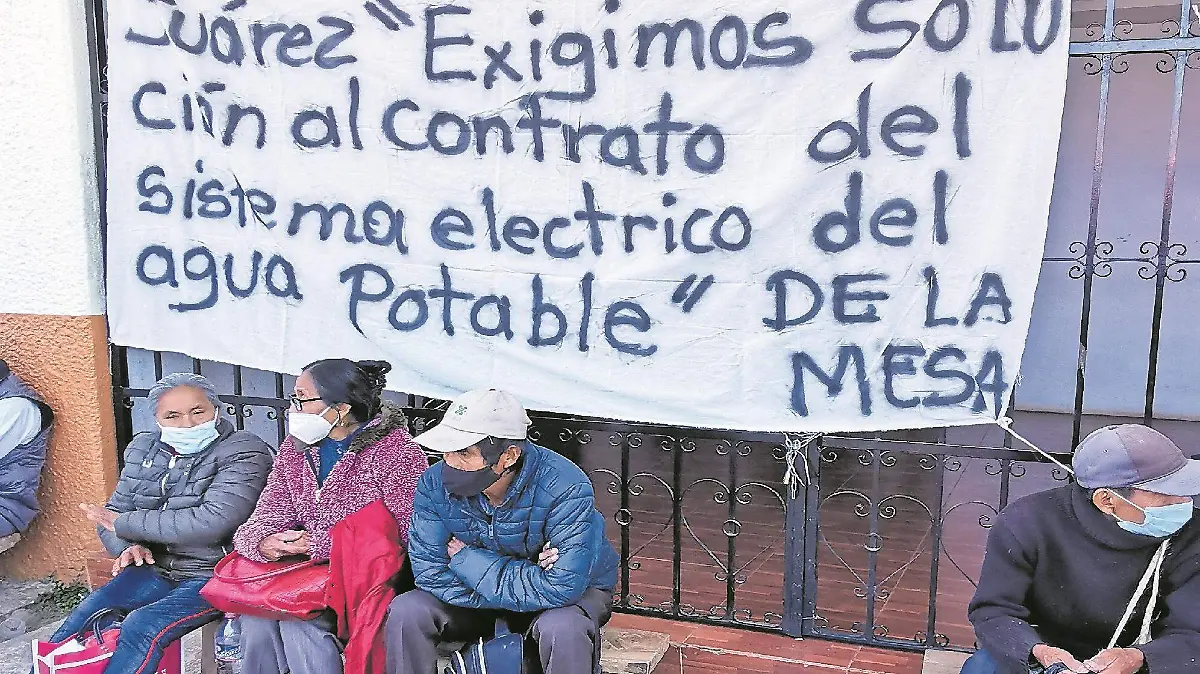 Juárez "Exigimos SOLU
ción al contrato del
sistema electrico del
agua Potable" DE LA
MESA